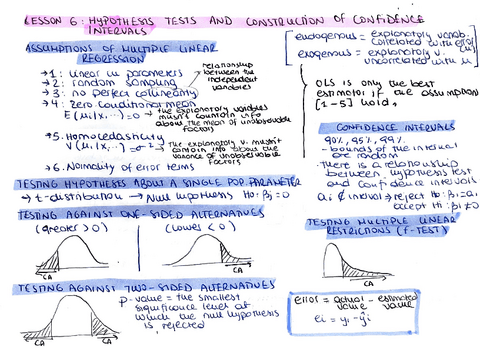 LESSON 6: HYPOTHESIS TESTS AND CONSTRUCTION OF CONFIDENCE
INTERVALS
ASSUMPTIONS OF MULTIPLE LINEAR
REGRESSION
→ 1: linear in parameters
→ 2: random sampling
→ 3: no perfect collinearity
→ 4: zero conditional mean
relationship
between the
independent
variables
E(μi|x...)=0 → the explanatory variables
mustn't contain info
about the mean of unobservable
factors
→ 5. Homocedasticity
V(μi|x...)=σ² → the explanatory v. mustn't
contain info about the
variance of unobservable
factors
→ 6. Normality of error terms
TESTING HYPOTHESIS ABOUT A SINGLE POP PARAMETER
→ t-distribution → Null hypothesis H0: βj=0
TESTING AGAINST ONE-SIDED ALTERNATIVES
(greater > 0)
(lower < 0)
CA
CA
TESTING AGAINST TWO-SIDED ALTERNATIVES
CA
p-value = the smallest
significance level at
which the null hypothesis
is rejected
endogenous = explanatory variab.
correlated with error
exogenous = explanatory
uncorrelated with μ
OLS is only the best
estimator if the assumption
[1-5] hold.
CONFIDENCE INTERVALS
90%, 95%, 99%
· bounds of the interval
are random
· There is a relationship
between hypothesis test
and confidence intervals
ai ∉ interval → reject H0: βj=ai
accept H1: βj≠0
TESTING MULTIPLE LINEAR
RESTRICTIONS (F-TEST)
CA
error = actual value - estimated value
ei = yi - ŷi